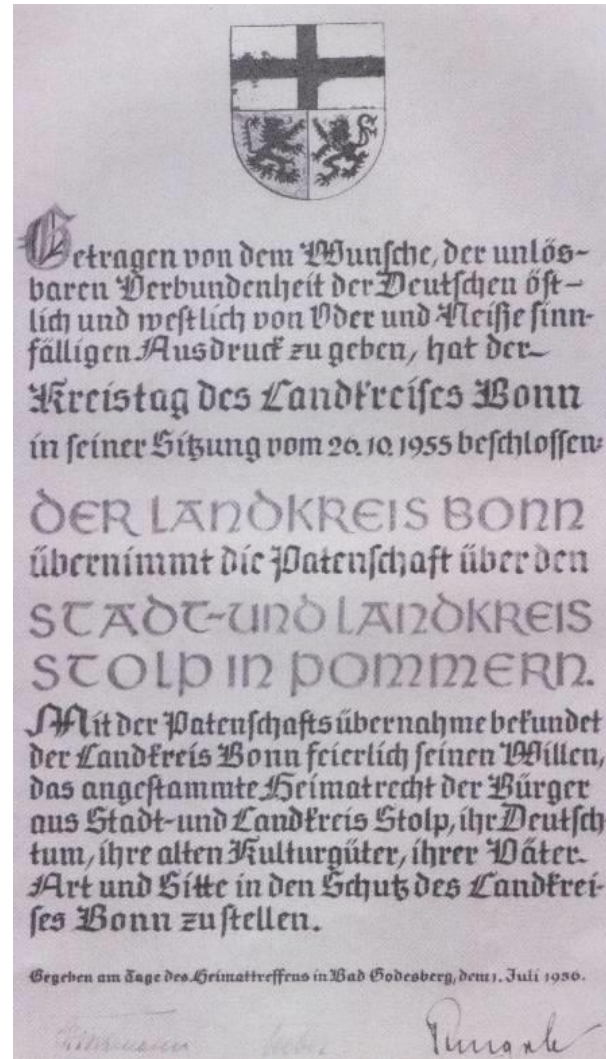 Getragen von dem Wunsche, der unlös-
baren Verbundenheit der Deutschen öst-
lich und westlich von Oder und Neiße sinn-
fälligen Ausdruck zu geben, hat der
Kreistag des Landkreises Bonn
in seiner Sitzung vom 26.10.1955 beschlossen:
DER LANDKREIS BONN
übernimmt die Patenschaft über den
STADT- UND LANDKREIS
STOLP IN POMMERN.
Mit der Patenschaftsübernahme bekundet
der Landkreis Bonn feierlich seinen Willen,
das angestammte Heimatrecht der Bürger
aus Stadt- und Landkreis Stolp, ihr Deutsch
tum, ihre alten Kulturgüter, ihrer Väter
Art und Sitte in den Schutz des Landkrei-
ses Bonn zu stellen.
Gegeben am Tage des Heimattreffens in Bad Godesberg, dem 1. Juli 1956.